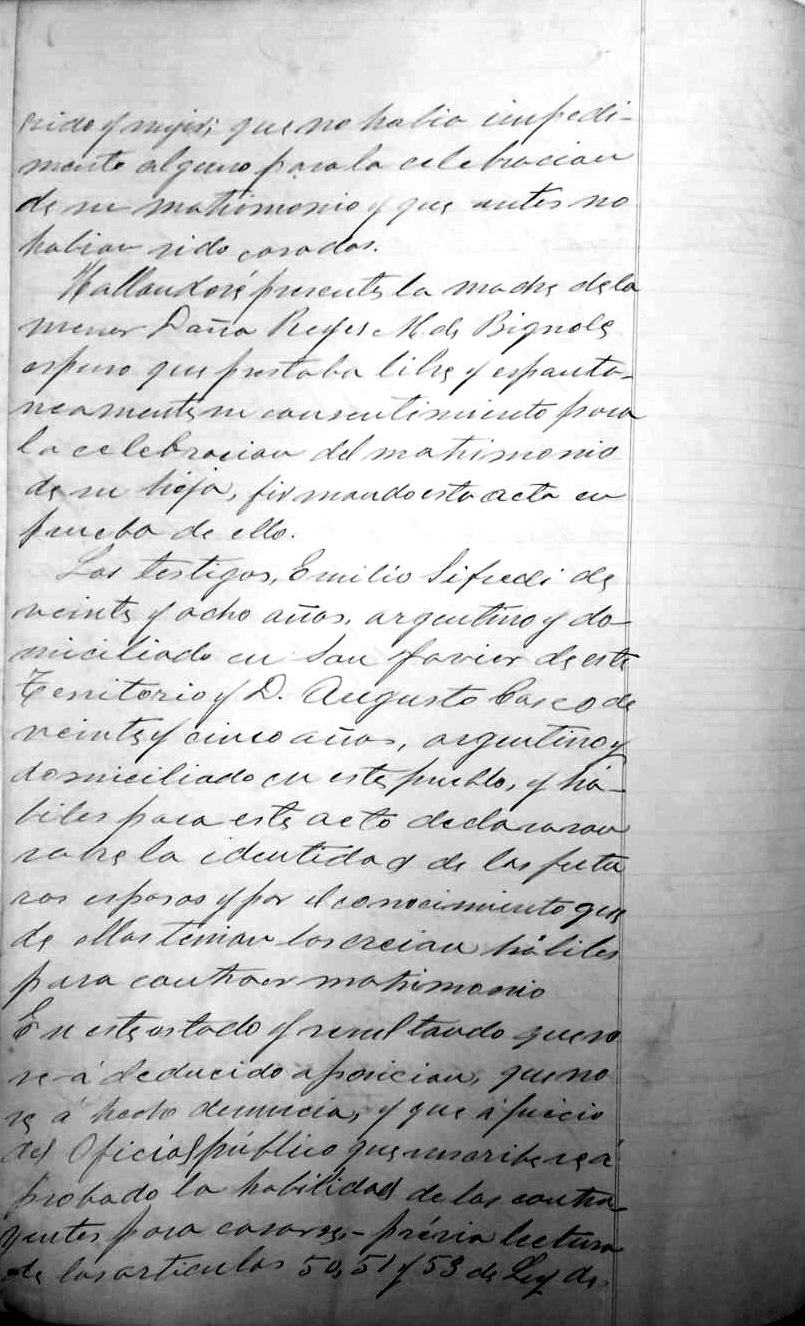 rido y mujer; que no habia impedi-
mento alguno para la celebracion
de su matrimonio y que antes no
habian sido casados.
Hallandose presente la madre de la
menor Doña Reyes M. de Bignole
espuso que prestaba libre y espanta-
neamente su consentimiento para
la celebracion del matrimonio
de su hija, firmando esta acta en
prueba de ello.
Los testigos, Emilio Sifredi de
veinte y ocho años, argentino y do-
miciliado en San Javier de este
Territorio y D. Augusto Casco de
veinte y cinco años, argentino y
domiciliado en este pueblo, y há-
biles para este acto declararon
sobre la identidad de los futu
ros esposos y por el conocimiento que
de ellos tenian los creian hábiles
para contraer matrimonio
En este estado y resultando que no
se á deducido oposicion, que no
se á hecho denuncia, y que á juicio
del Oficial público que suscribe se á
probado la habilidad de los contra-
yentes para casarse,- prévia lectura
de los articulos 50, 51 y 53 de Ley de